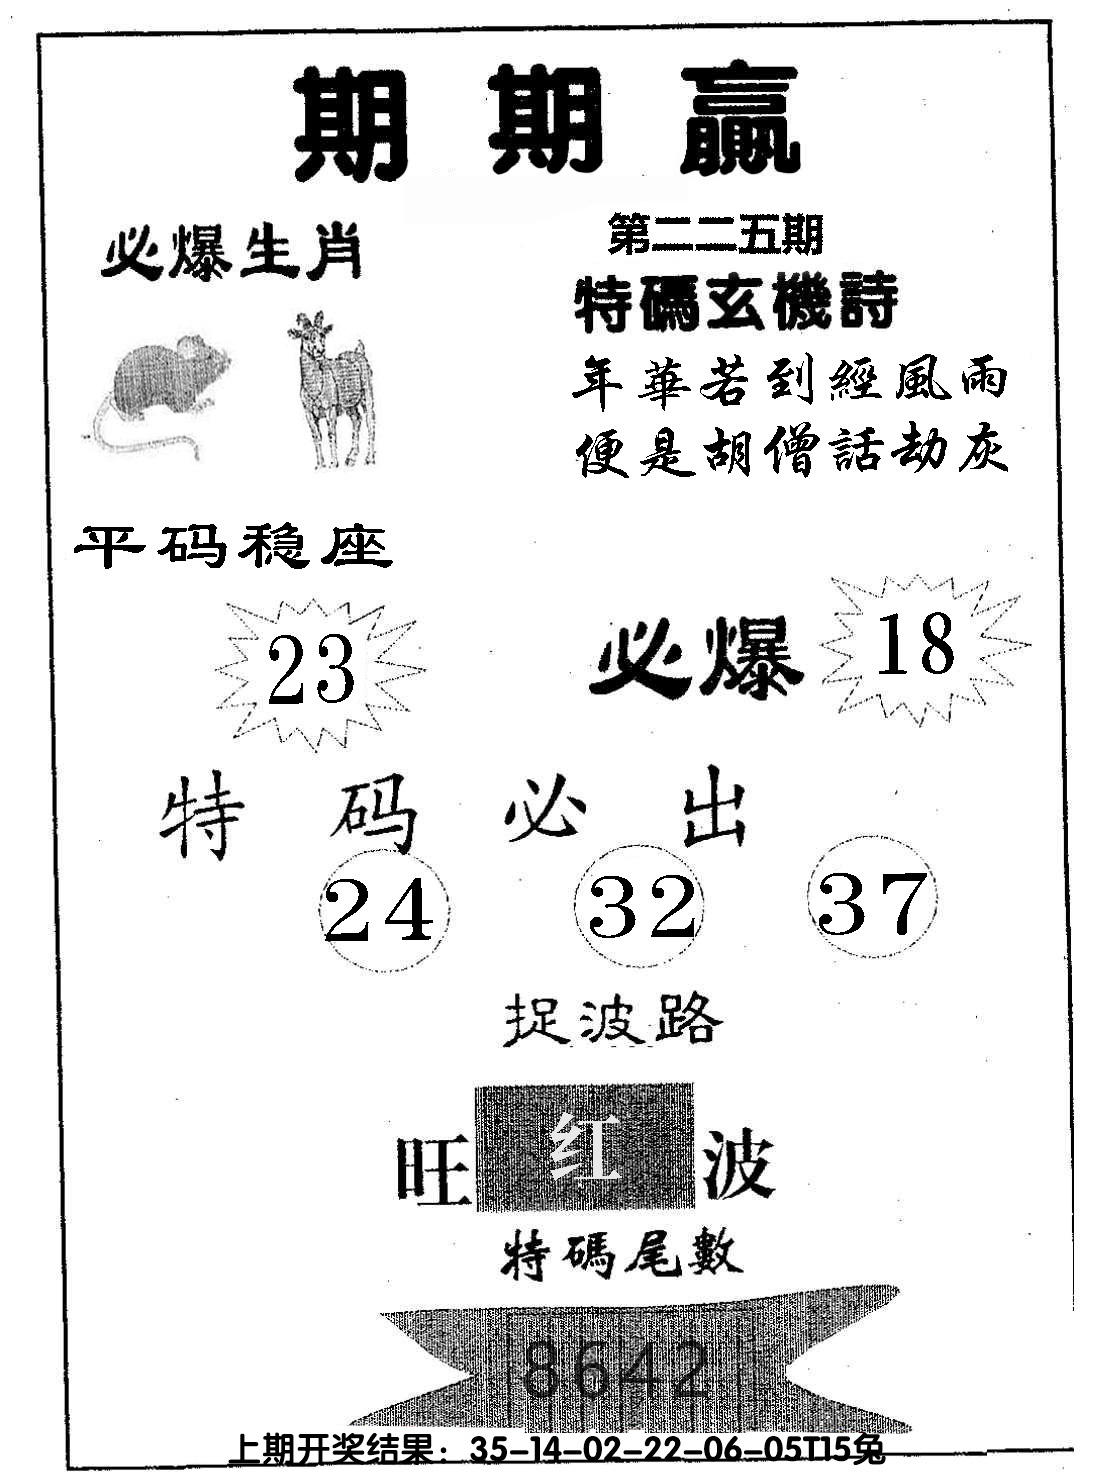 期期赢
必爆生肖
第二二五期
特碼玄機詩
年華若到經風雨
便是胡僧話劫灰
平码稳座
23
必爆
18
特码必出
24 32 37
捉波路
旺红波
特碼尾數
8642
上期开奖结果：35-14-02-22-06-05T15兔